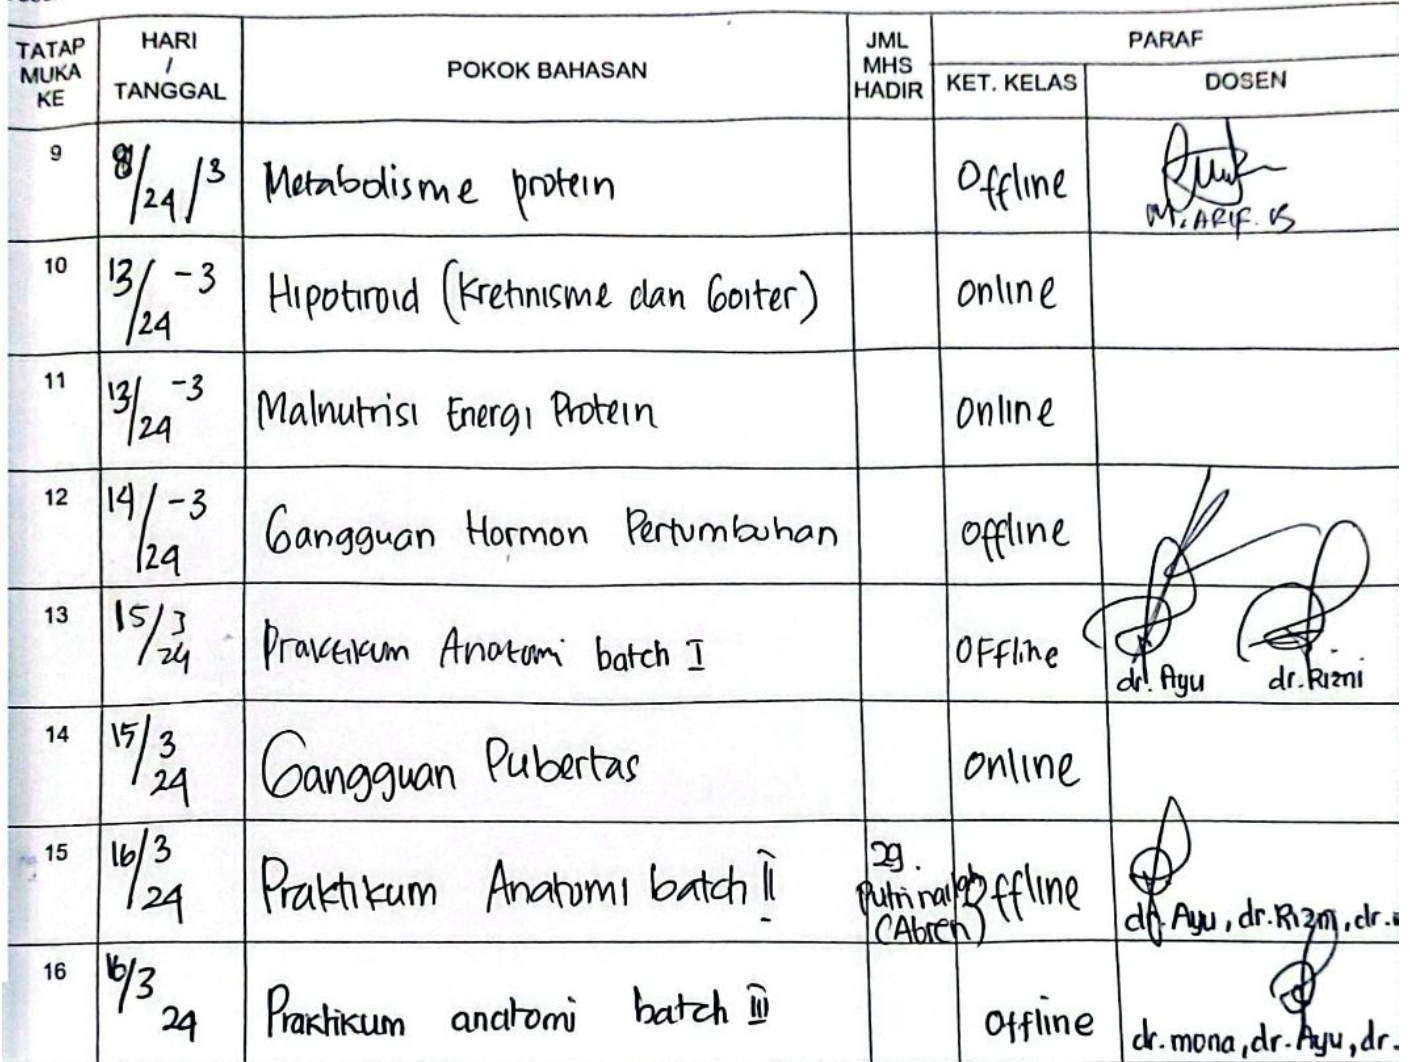 TATAP MUKA KE | HARI / TANGGAL | POKOK BAHASAN | JML MHS HADIR | PARAF
KET. KELAS | DOSEN
9 | 8/24/3 | Metabolisme protein | Offline | M. ARIF. VS
10 | 13/-3 /24 | Hipotiroid (Kretinisme dan Goiter) | online
11 | 13/-3 /24 | Malnutrisi Energi Protein | online
12 | 14/-3 /24 | Gangguan Hormon Pertumbuhan | offline
13 | 15/3 /24 | Praktikum Anatomi batch I | OFFline | dr. Ayu dr. Rizni
14 | 15/3 24 | Gangguan Pubertas | online
15 | 16/3 /24 | Praktikum Anatomi batch II | 29. Putri (Absen) | Offline | dr. Ayu, dr. Rizni, dr.
16 | 16/3 24 | Praktikum anatomi batch III | offline | dr. mona, dr. Ayu, dr.